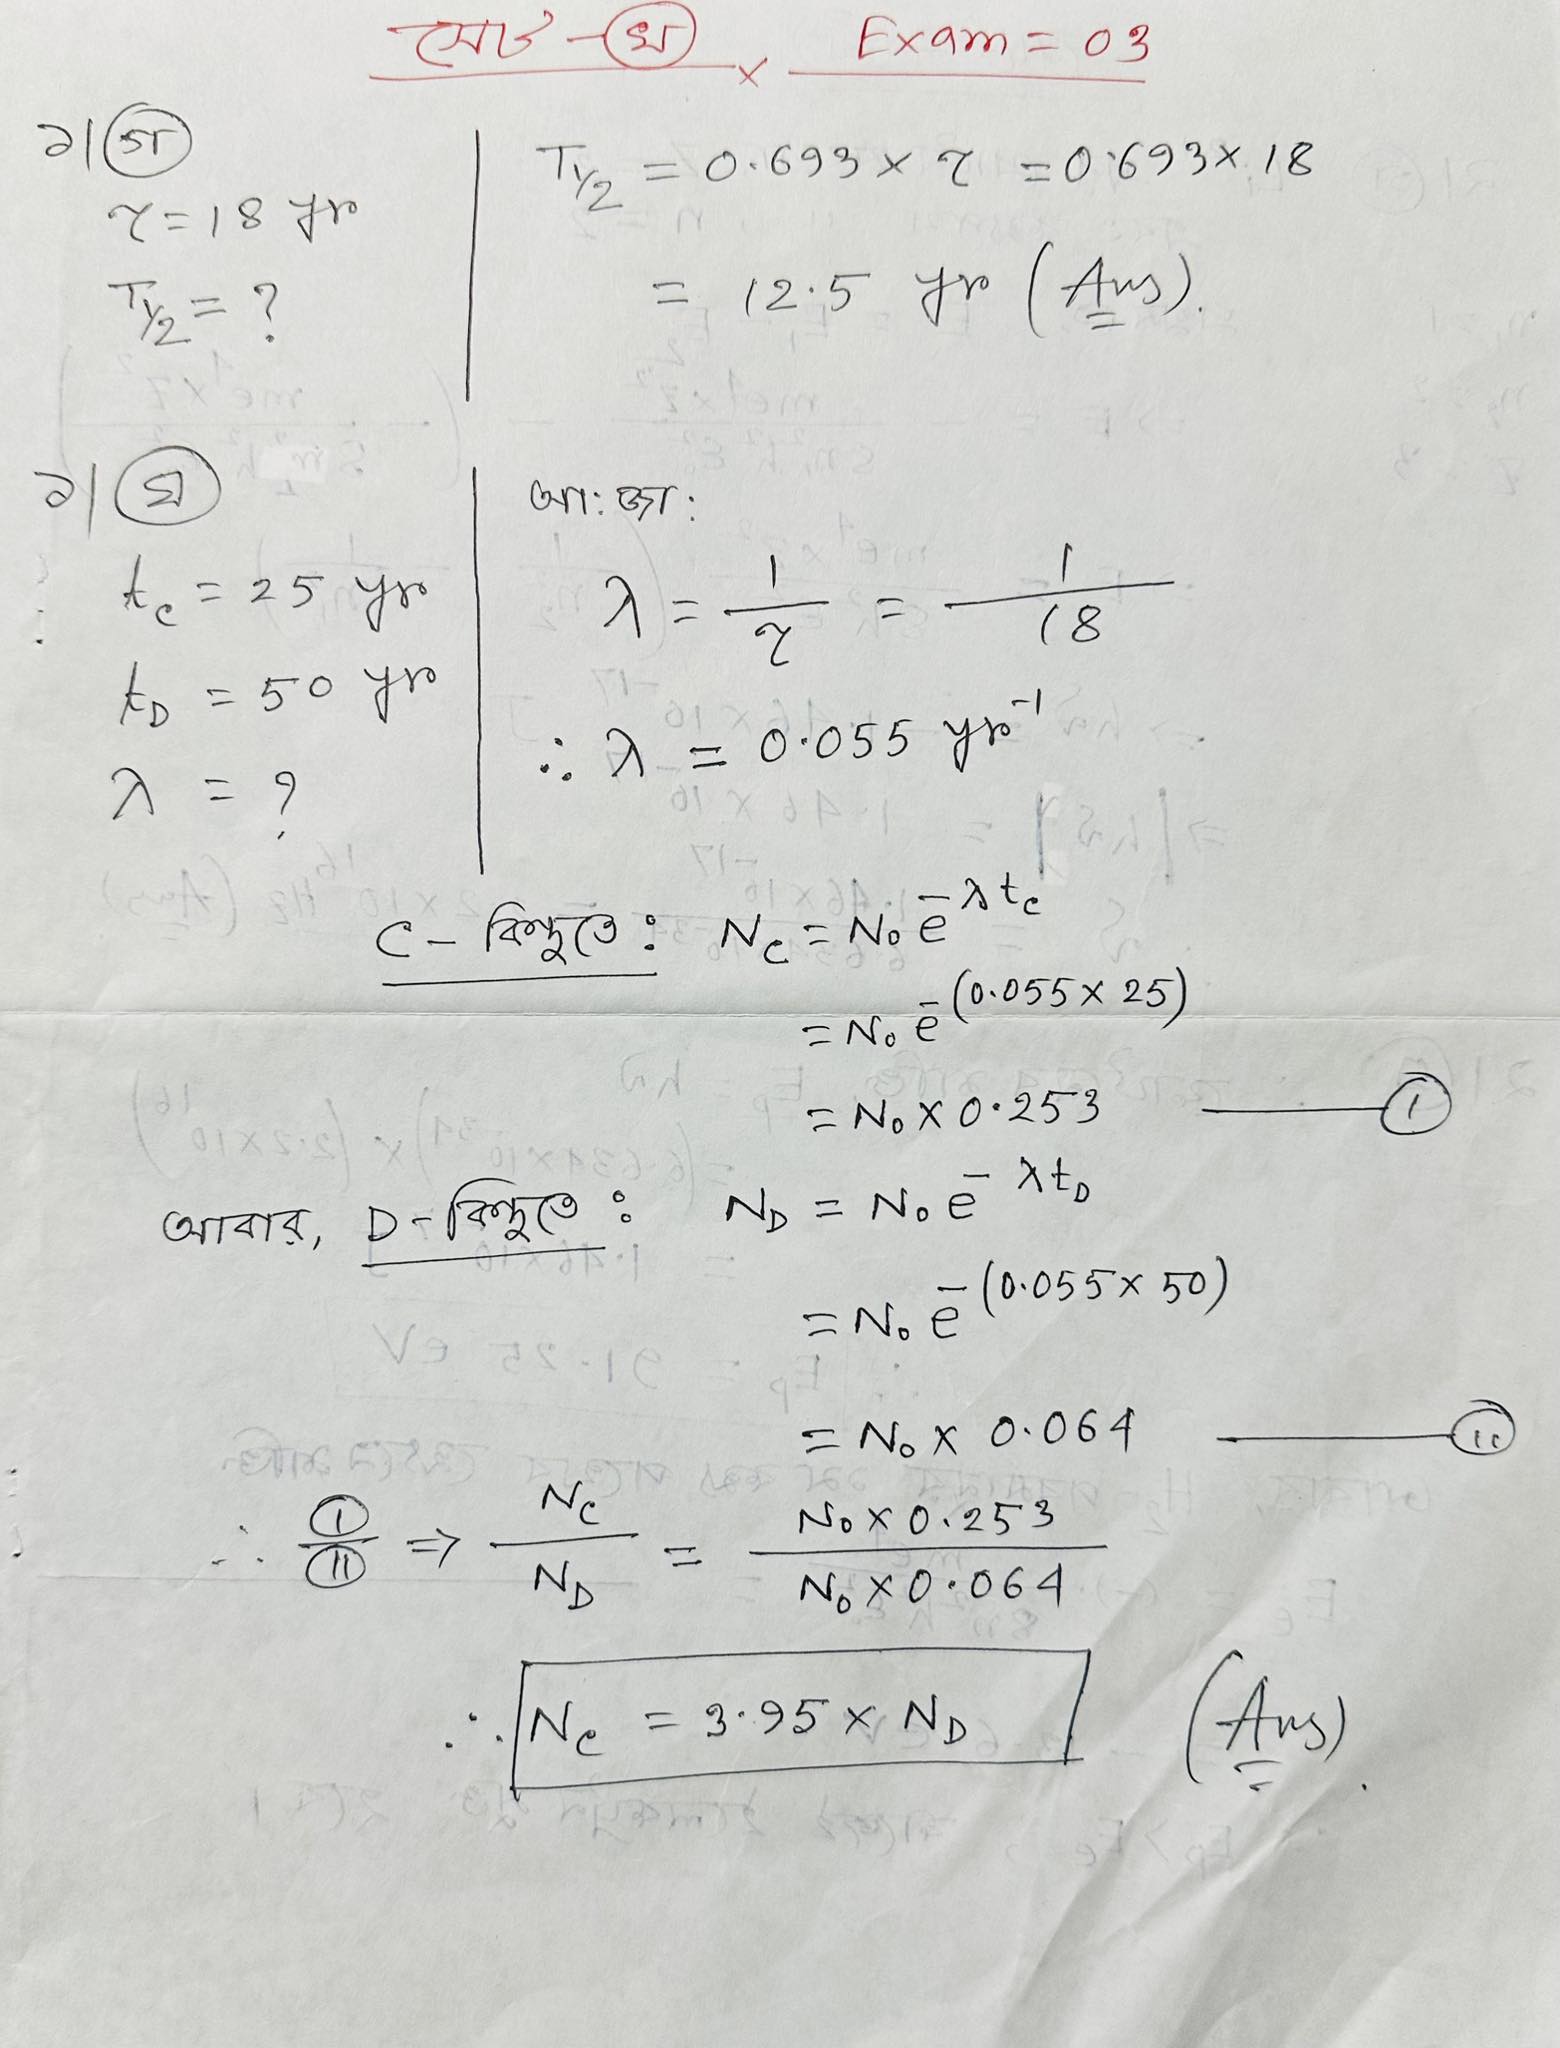 সেট - খ × Exam = 03
১| গ
τ = 18 yr
T½ = ?
T½ = 0.693 × τ = 0.693 × 18
= 12.5 yr (Ans).
১| ঘ
t_C = 25 yr
t_D = 50 yr
λ = ?
আ: জা:
λ = 1/τ = 1/18
∴ λ = 0.055 yr⁻¹
C - বিন্দুতে : N_C = N₀ e^-λt_C
= N₀ e^-(0.055 × 25)
= N₀ × 0.253 —— (i)
আবার, D - বিন্দুতে : N_D = N₀ e^-λt_D
= N₀ e^-(0.055 × 50)
= N₀ × 0.064 —— (ii)
∴ (i)/(ii) ⇒ N_C/N_D = N₀ × 0.253/N₀ × 0.064
∴ N_C = 3.95 × N_D (Ans).